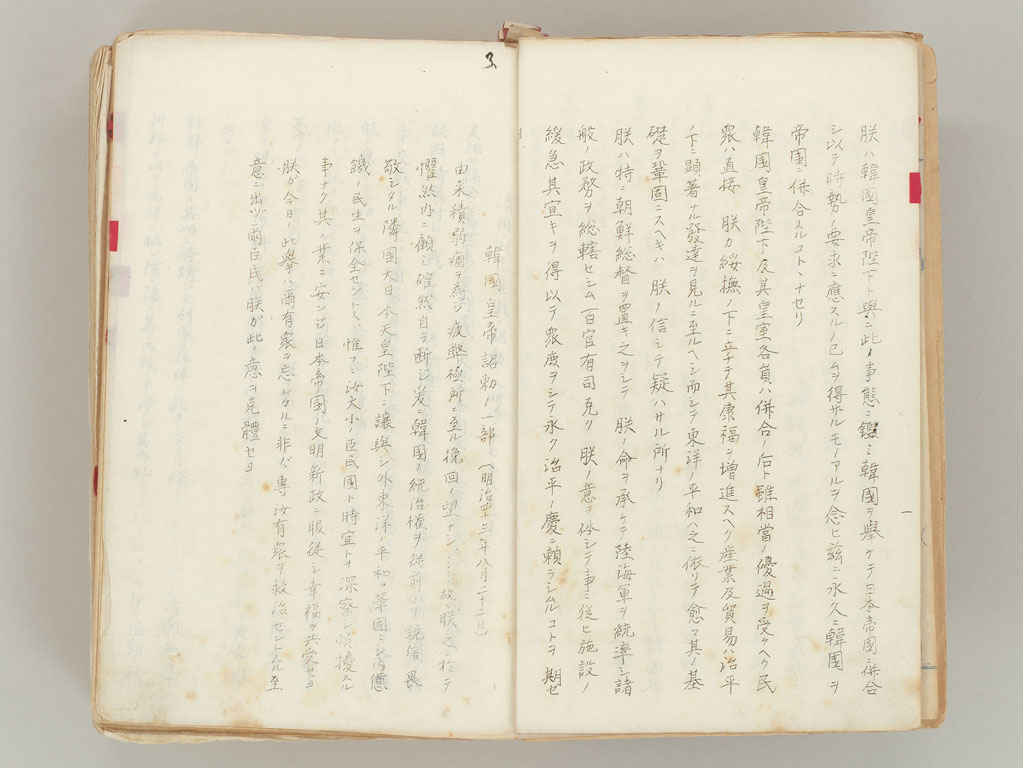 朕ハ韓國皇帝陛下ト與ニ此ノ事態ニ鑑ミ韓國ヲ擧ケテ日本帝國ニ併合
シ以テ時勢ノ要求ニ應スルノ已ムヲ得サルモノアルヲ念ヒ茲ニ永久ニ韓国ヲ
帝国ニ併合スルコトヽナセリ
韓国皇帝陛下及其皇室各員ハ併合ノ后ト雖相當ノ優遇ヲ受クヘク民
衆ハ直接 朕カ綏撫ノ下ニ立チテ其康福ヲ増進スヘク産業及貿易ハ治平
ノ下ニ顕著ナル發達ヲ見ルニ至ルヘシ而シテ東洋ノ平和ハ之ニ依リテ愈々其ノ基
礎ヲ鞏固ニスヘキハ 朕ノ信シテ疑ハサル所ナリ
朕ハ特ニ朝鮮総督ヲ置キ之ヲシテ 朕ノ命ヲ承ケテ陸海軍ヲ統率シ諸
般ノ政務ヲ総轄セシム百官有司克ク 朕ノ意ヲ体シテ事ニ従ヒ施設ノ
緩急其宜キヲ得以テ衆庶ヲシテ永ク治平ノ慶ニ頼ラシムルコトヲ期セ
3
韓國皇帝詔勅ノ一部 (明治四十三年八月二十二日)
由来積弱痼ヲ為シ疲弊極所ニ至ル挽回ノ望ナシ……故ニ朕是ニ於テ
懼然内ニ顧ミ確然自ラ断シ爰ニ韓國ノ統治権ヲ従前ヨリ親信畏
敬シタル隣国大日本天皇陛下ニ讓與シ外東洋ノ平和ヲ鞏固ニシ内
議ノ民生ヲ保全セントス惟フニ汝大小ノ臣民國ト時宜トヲ深察シ煩擾スル
事ナク其ノ業ニ安シジ日本帝国ノ文明新政ニ服従シ幸福ヲ共受セヨ
朕カ今日ノ此擧ハ爾有衆ヲ忘レタルニ非ズ專汝有衆ヲ救治セントスル至
意ニ出ツ爾臣民ハ朕ガ此ノ意ヲ克體セヨ